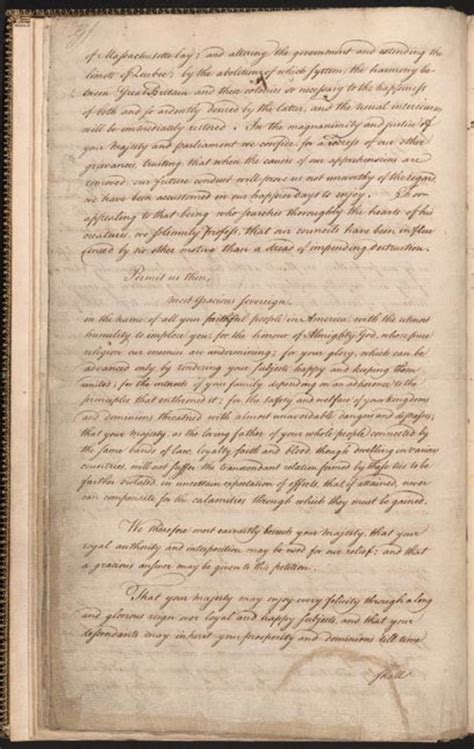 of Massachusetts-bay; and altering the government and extending the
limits of Quebec; by the abolition of which system, the harmony be-
tween Great Britain and these colonies so necessary to the happiness
of both and so ardently desired by the latter, and the usual intercourses
will be immediately restored. In the magnanimity and justice of
your majesty and parliament we confide, for a redress of our other
grievances, trusting, that when the causes of our apprehensions are
removed, our future conduct will prove us not unworthy of the regard,
we have been accustomed in our happier days to enjoy. For
appealing to that being who searches thoroughly the hearts of his
creatures, we solemnly profess, that our councils have been influ-
enced by no other motive than a dread of impending destruction.
Permit us then,
most gracious sovereign,
in the name of all your faithful people in America with the utmost
humility to implore you, for the honour of Almighty God, whose pure
religion our enemies are undermining; for your glory, which can be
advanced only by rendering your subjects happy and keeping them
united; for the interests of your family depending on an adherence to the
principles that enthroned it; for the safety and welfare of your kingdoms
and dominions threatned with almost unavoidable dangers and distresses;
that your majesty, as the loving father of your whole people connected by
the same bands of law, loyalty, faith and blood though dwelling in various
countries, will not suffer the transcendant relation formed by these ties to be
farther violated, in uncertain expectation of effects, that if attained, never
can compensate for the calamities through which they must be gained.
We therefore most earnestly beseech your majesty, that your
royal authority and interposition may be used for our relief; and that
a gracious answer may be given to this petition.
That your majesty may enjoy every felicity through a long
and glorious reign over loyal and happy subjects, and that your
descendants may inherit your prosperity and dominions till time
shall